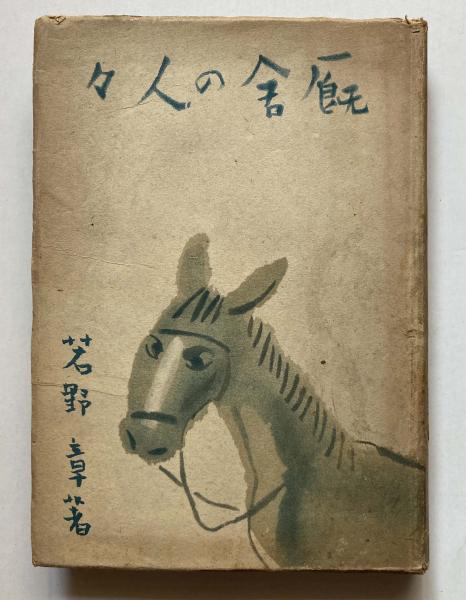 厩舎の人々
若野章著